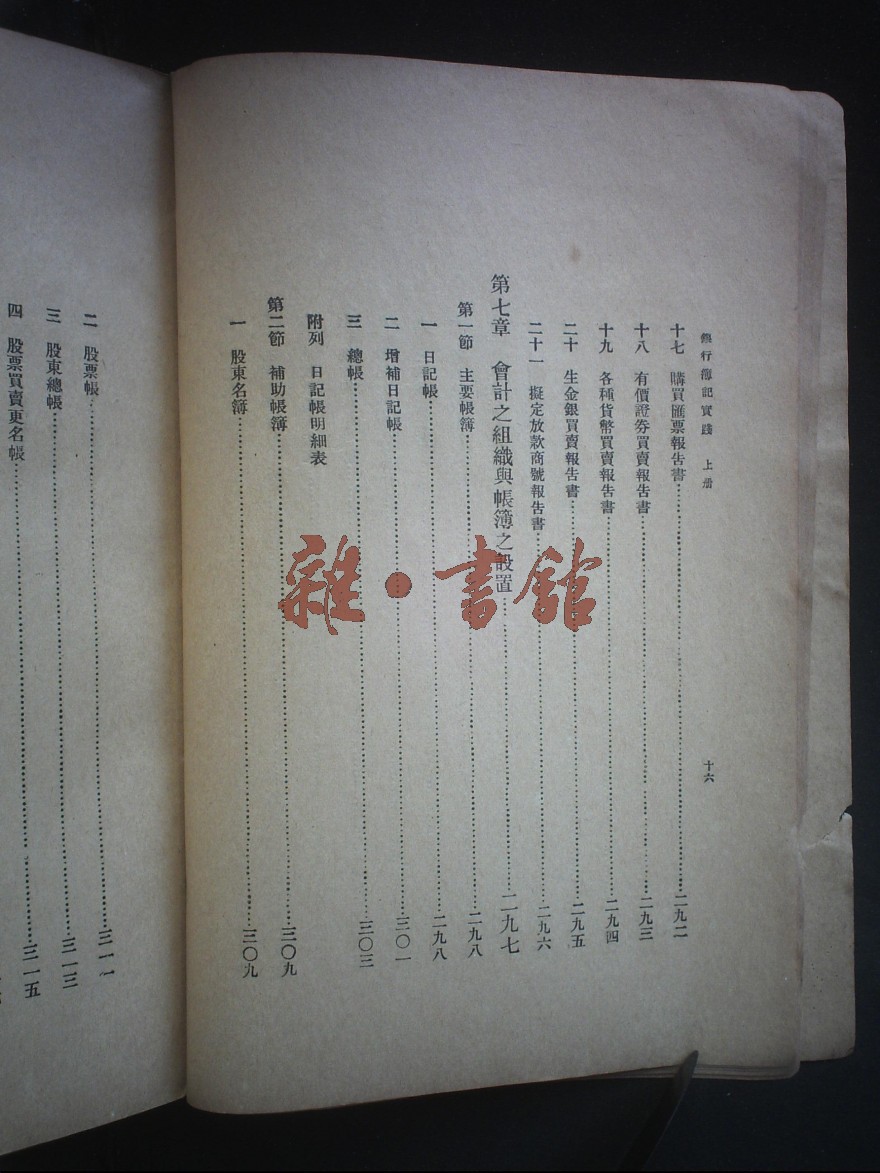 銀行簿記實踐　上册
十六
十七　購買匯票報告書……二九二
十八　有價證券買賣報告書……二九三
十九　各種貨幣買賣報告書……二九四
二十　生金銀買賣報告書……二九五
二十一　擬定放款商號報告書……二九六
第七章　會計之組織與帳簿之設置……二九七
第一節　主要帳簿……二九八
一　日記帳……二九八
二　增補日記帳……三〇一
三　總帳……三〇三
附列　日記帳明細表
第二節　補助帳簿……三〇九
一　股東名簿……三〇九
二　股票帳……三一一
三　股東總帳……三一三
四　股票買賣更名帳……三一五
雜·書館